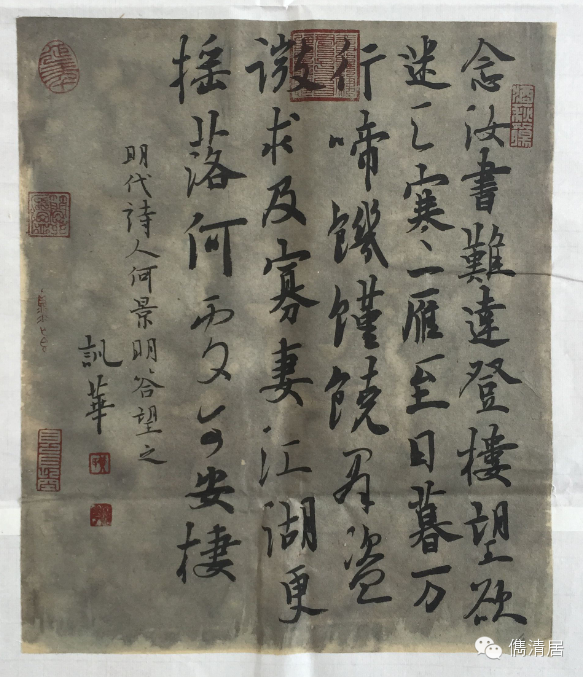 念汝書難達登樓望欲
迷天寒一雁至日暮万
行啼饑饉饒群盗
徵求及寡妻江湖更
摇落何處可安棲
明代詩人何景明答望之
訊華
雋清居